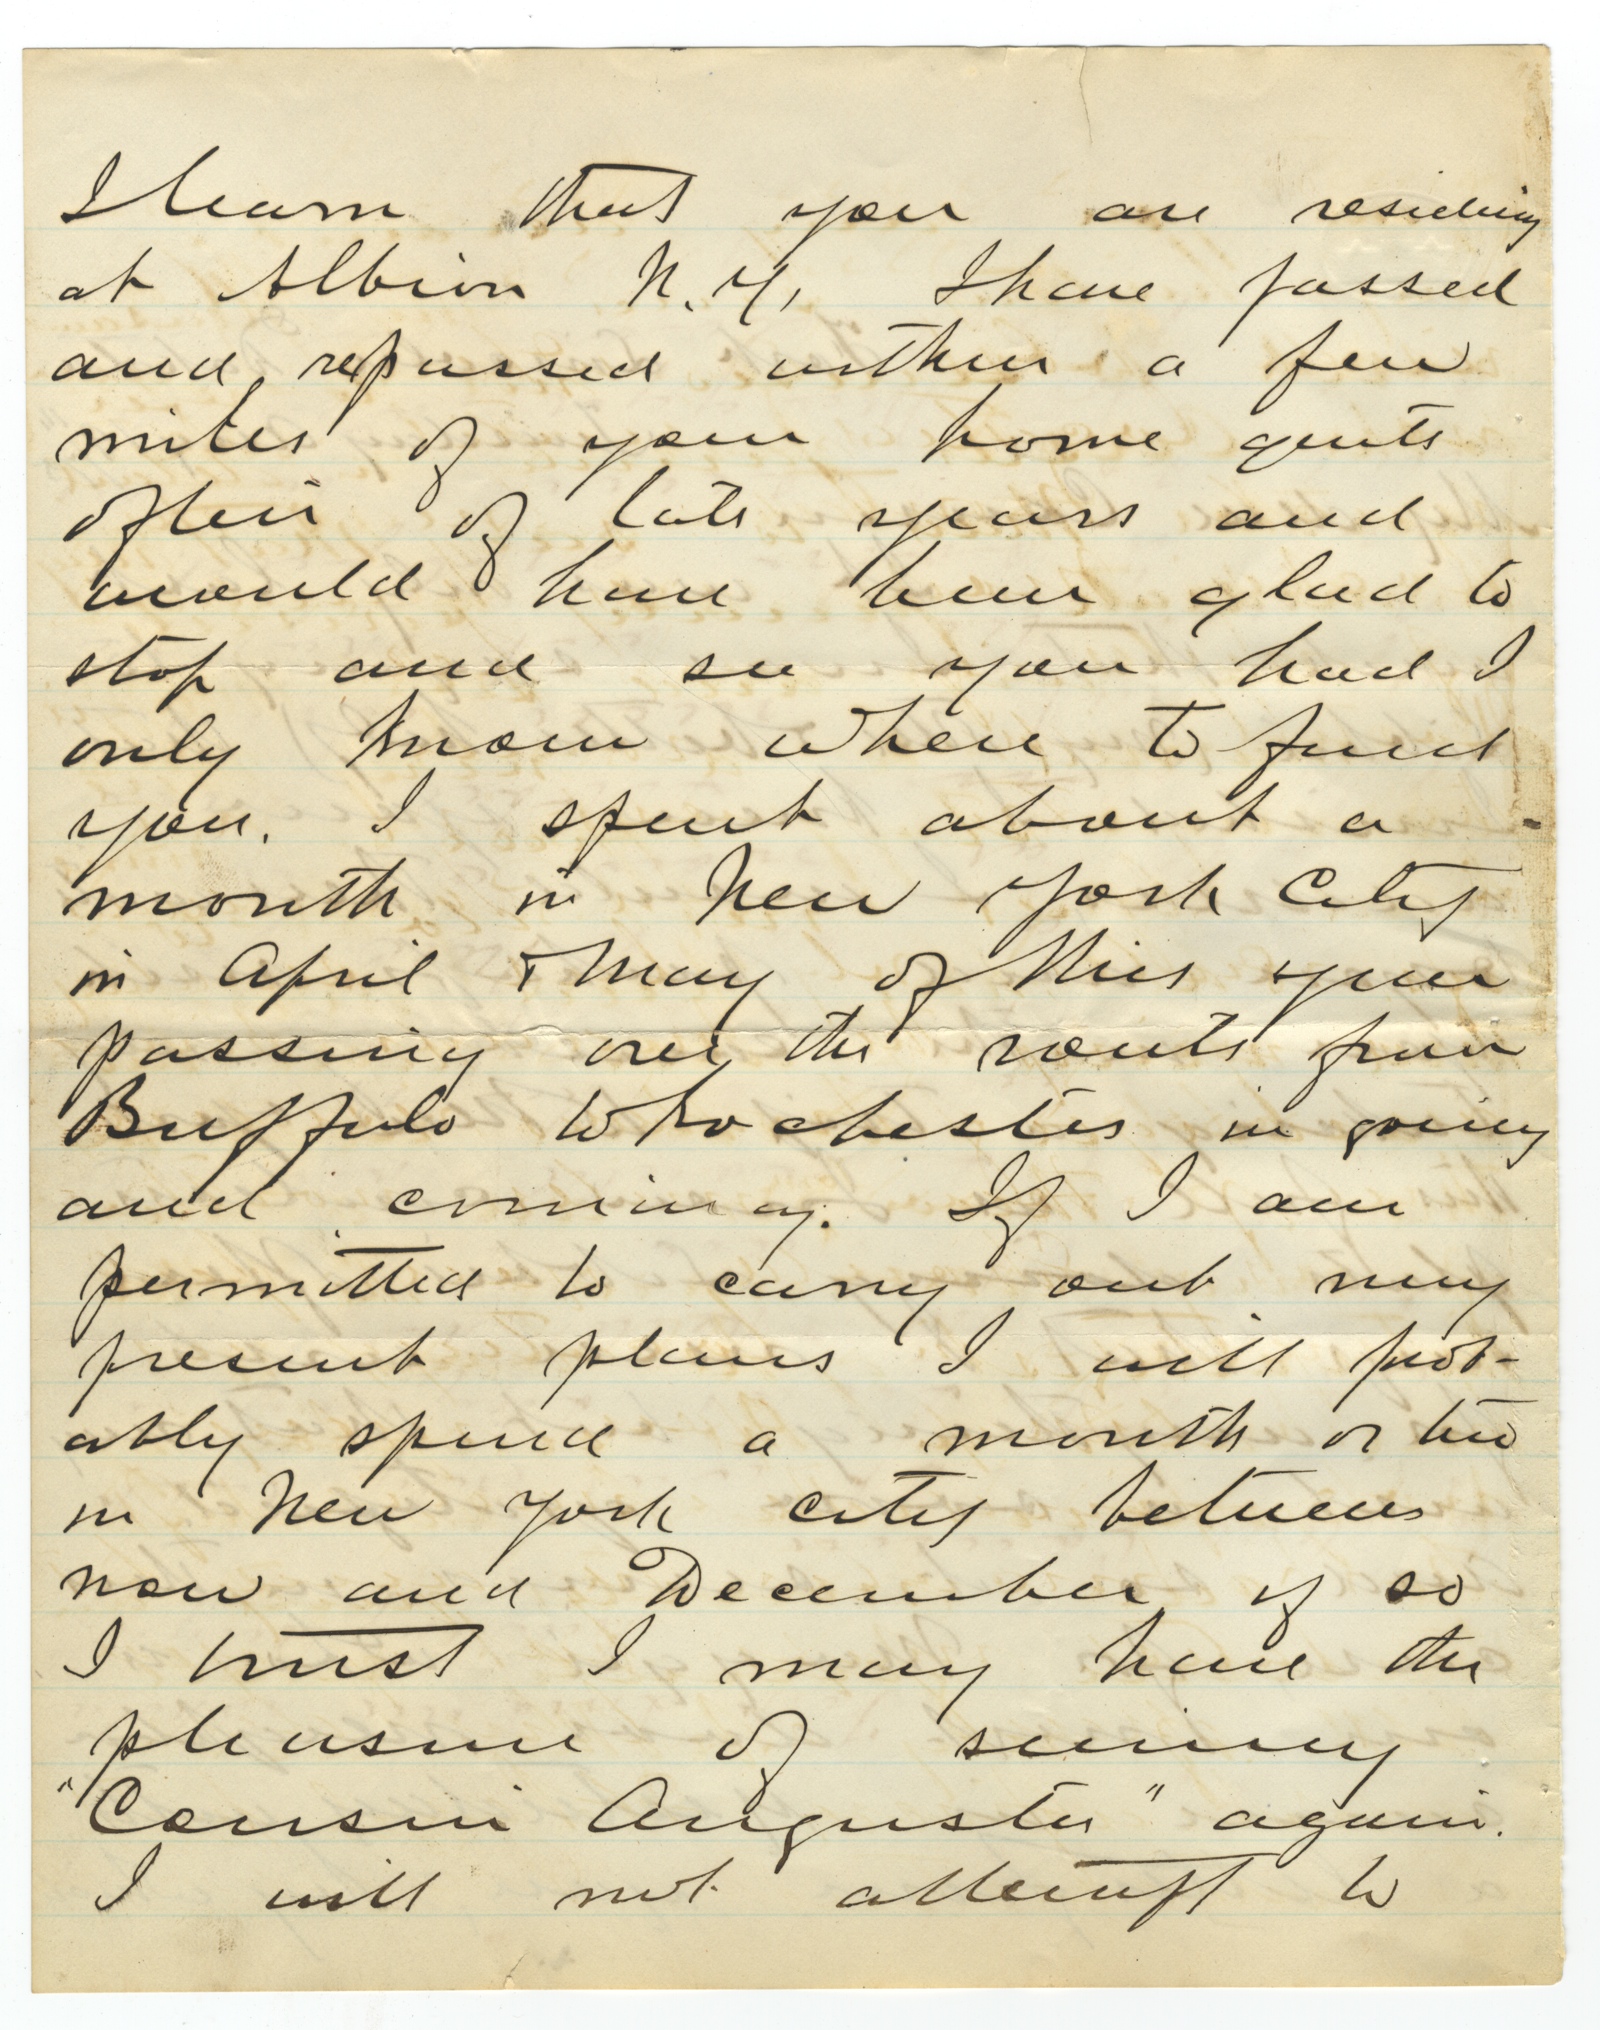 I learn that you are residing
at Albion N.Y, I have passed
and repassed within a few
miles of your home quite
often of late years and
would have been glad to
stop and see you had I
only known where to find
you. I spent about a
month in New York City
in April & May of this year
passing over the route from
Buffalo to Rochester in going
and coming. If I am
permitted to carry out my
present plans I will prob-
ably spend a month or two
in New York city between
now and December if so
I trust I may have the
pleasure of seeing
"Cousin Augusta" again.
I will not attempt to